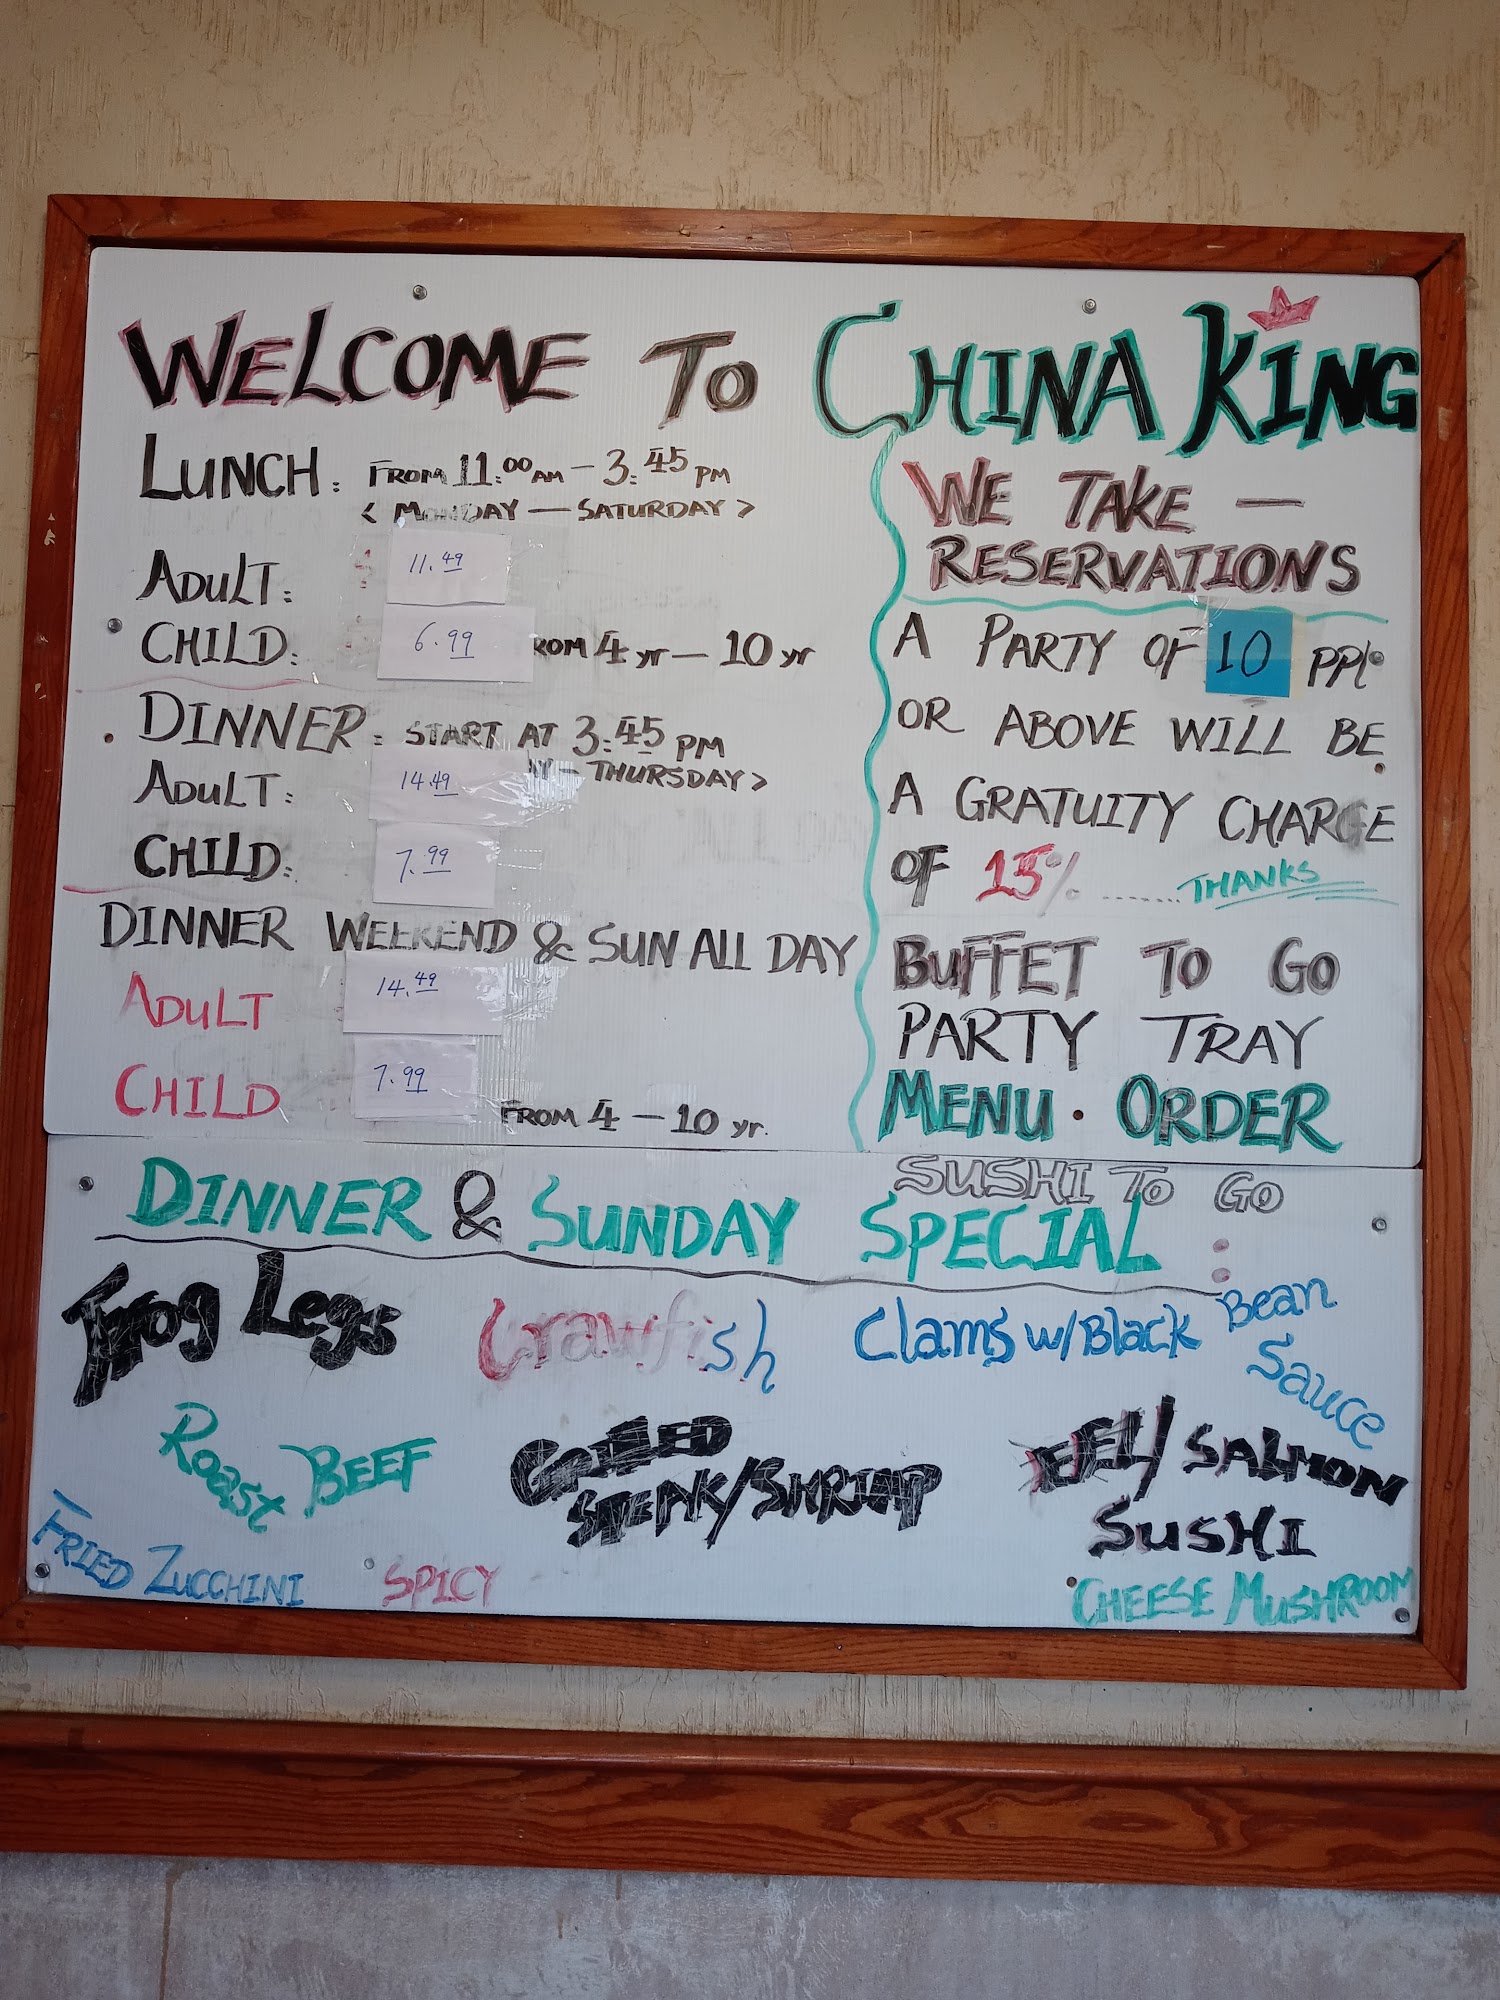 WELCOME TO CHINA KING
LUNCH: FROM 11:00 AM - 3:45 PM
< MONDAY — SATURDAY >
ADULT: 11.49
CHILD: 6.99 ROM 4 yr — 10 yr
DINNER: START AT 3:45 PM
Y — THURSDAY >
ADULT: 14.49
CHILD: 7.99
DINNER WEEKEND & SUN ALL DAY
ADULT 14.49
CHILD 7.99
FROM 4 — 10 yr.
WE TAKE —
RESERVATIONS
A PARTY OF 10 PPL
OR ABOVE WILL BE
A GRATUITY CHARGE
OF 15% ....... THANKS
BUFFET TO GO
PARTY TRAY
MENU . ORDER
SUSHI TO GO
DINNER & SUNDAY SPECIAL :
Frog Legs Crawfish Clams w/Black Bean
Sauce
Roast BEEF GRILLED
STEAK/SHRIMP
EEL/SALMON
SUSHI
FRIED ZUCCHINI SPICY CHEESE MUSHROOM